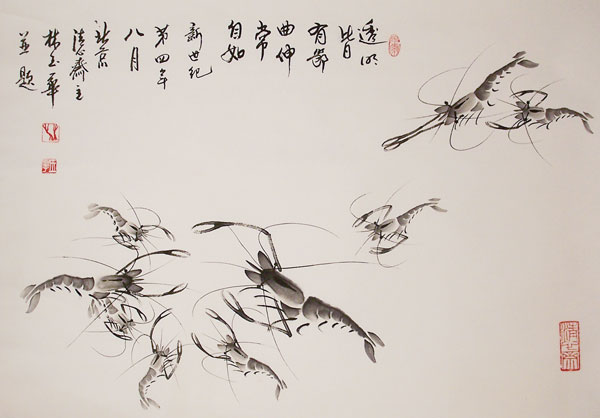 透明
皆
有節
曲伸
常
自如
新世紀
第四年
八月
北京
齋主
林玉華
並題